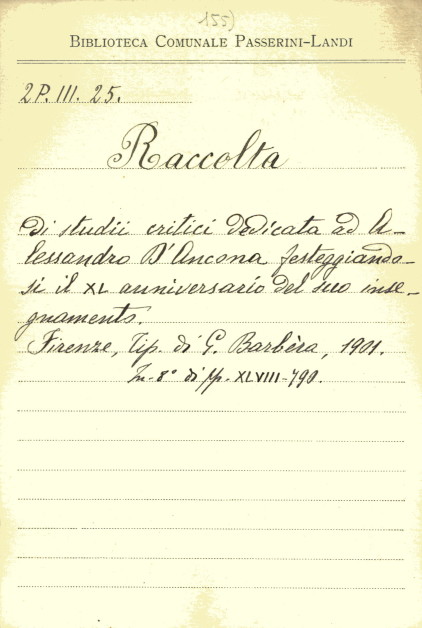 155)
BIBLIOTECA COMUNALE PASSERINI-LANDI
2P. III. 25.
Raccolta
di studii critici dedicata ad A-
lessandro D'Ancona festeggiando-
si il XL anniversario del suo inse-
gnamento.
Firenze, Tip. di G. Barbèra, 1901.
In-8° di pp. XLVIII-790.